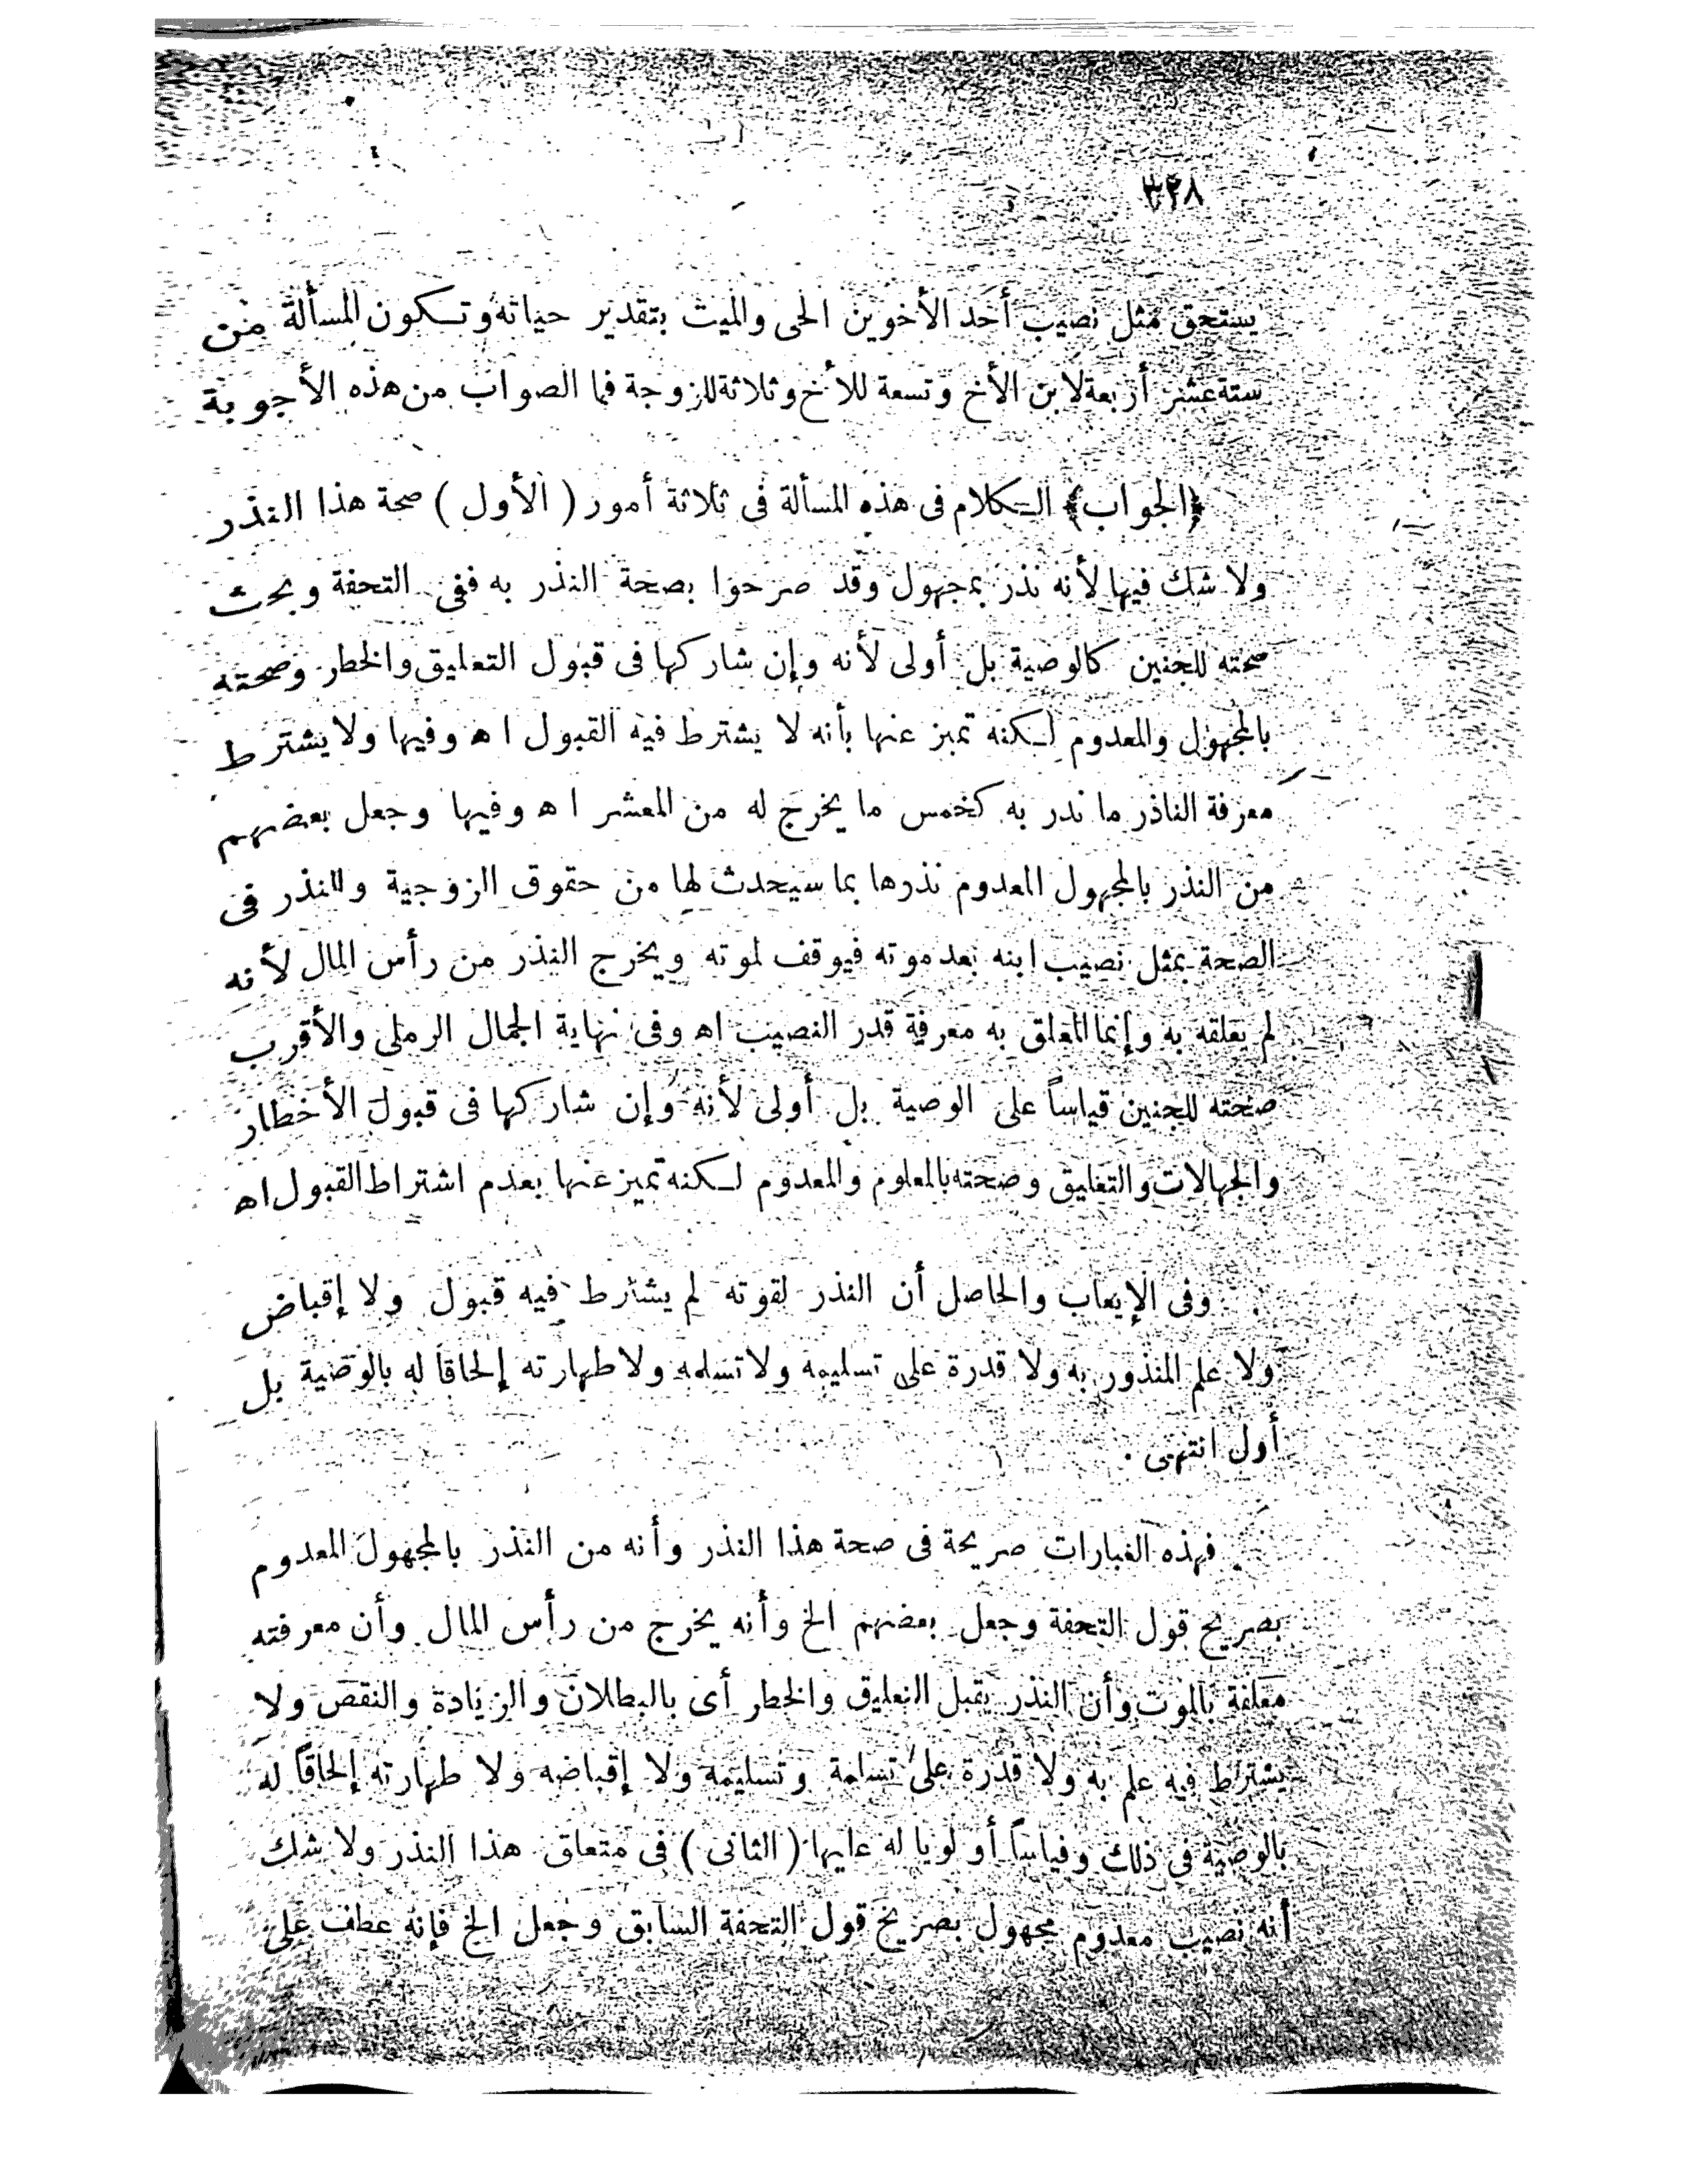 ٣٢٨
يستحق مثل نصيب أحد الأخوين الحى والميت بتقدير حياته وتكون المسألة من
ستة عشر أربعة لابن الأخ وتسعة للأخ وثلاثة للزوجة فما الصواب من هذه الأجوبة
﴿الجواب﴾ الكلام فى هذه المسألة فى ثلاثة أمور ( الأول ) صحة هذا النذر
ولا شك فيها لأنه نذر بمجهول وقد صرحوا بصحة النذر به ففى التحفة وبحث
صحته للجنين كالوصية بل أولى لأنه وإن شاركها فى قبول التعليق والخطر وصحته
بالمجهول والمعدوم لكنه تميز عنها بأنه لا يشترط فيه القبول اه وفيها ولا يشترط
معرفة الناذر ما نذر به كخمس ما يخرج له من المعشر اه وفيها وجعل بعضهم
من النذر بالمجهول المعدوم نذرها بما سيحدث لها من حقوق الزوجية والنذر فى
الصحة بمثل نصيب ابنه بعد موته فيوقف لموته ويخرج النذر من رأس المال لأنه
لم يعلقه به وإنما المعلق به معرفة قدر النصيب اه وفى نهاية الجمال الرملى والأقرب
صحته للجنين قياساً على الوصية بل أولى لأنه وإن شاركها فى قبول الأخطار
والجهالات والتعليق وصحته بالمعلوم والمعدوم لكنه تميز عنها بعدم اشتراط القبول اه
وفى الإيعاب والحاصل أن النذر لقوته لم يشترط فيه قبول ولا إقباض
ولا علم المنذور به ولا قدرة على تسليمه ولا تسلمه ولا طهارته إلحاقا له بالوصية بل
أول انتهى .
فهذه العبارات صريحة فى صحة هذا النذر وأنه من النذر بالمجهول المعدوم
بصريح قول التحفة وجعل بعضهم الخ وأنه يخرج من رأس المال وأن معرفته
معلقة بالموت وأن النذر يقبل التعليق والخطر أى بالبطلان والزيادة والنقص ولا
يشترط فيه علم به ولا قدرة على تسلمه وتسليمه ولا إقباضه ولا طهارته إلحاقاً له
بالوصية فى ذلك وقياساً أولويا له عليها ( الثانى ) فى متعلق هذا النذر ولا شك
أنه نصيب معدوم مجهول بصريح قول التحفة السابق وجعل الخ فإنه عطف على